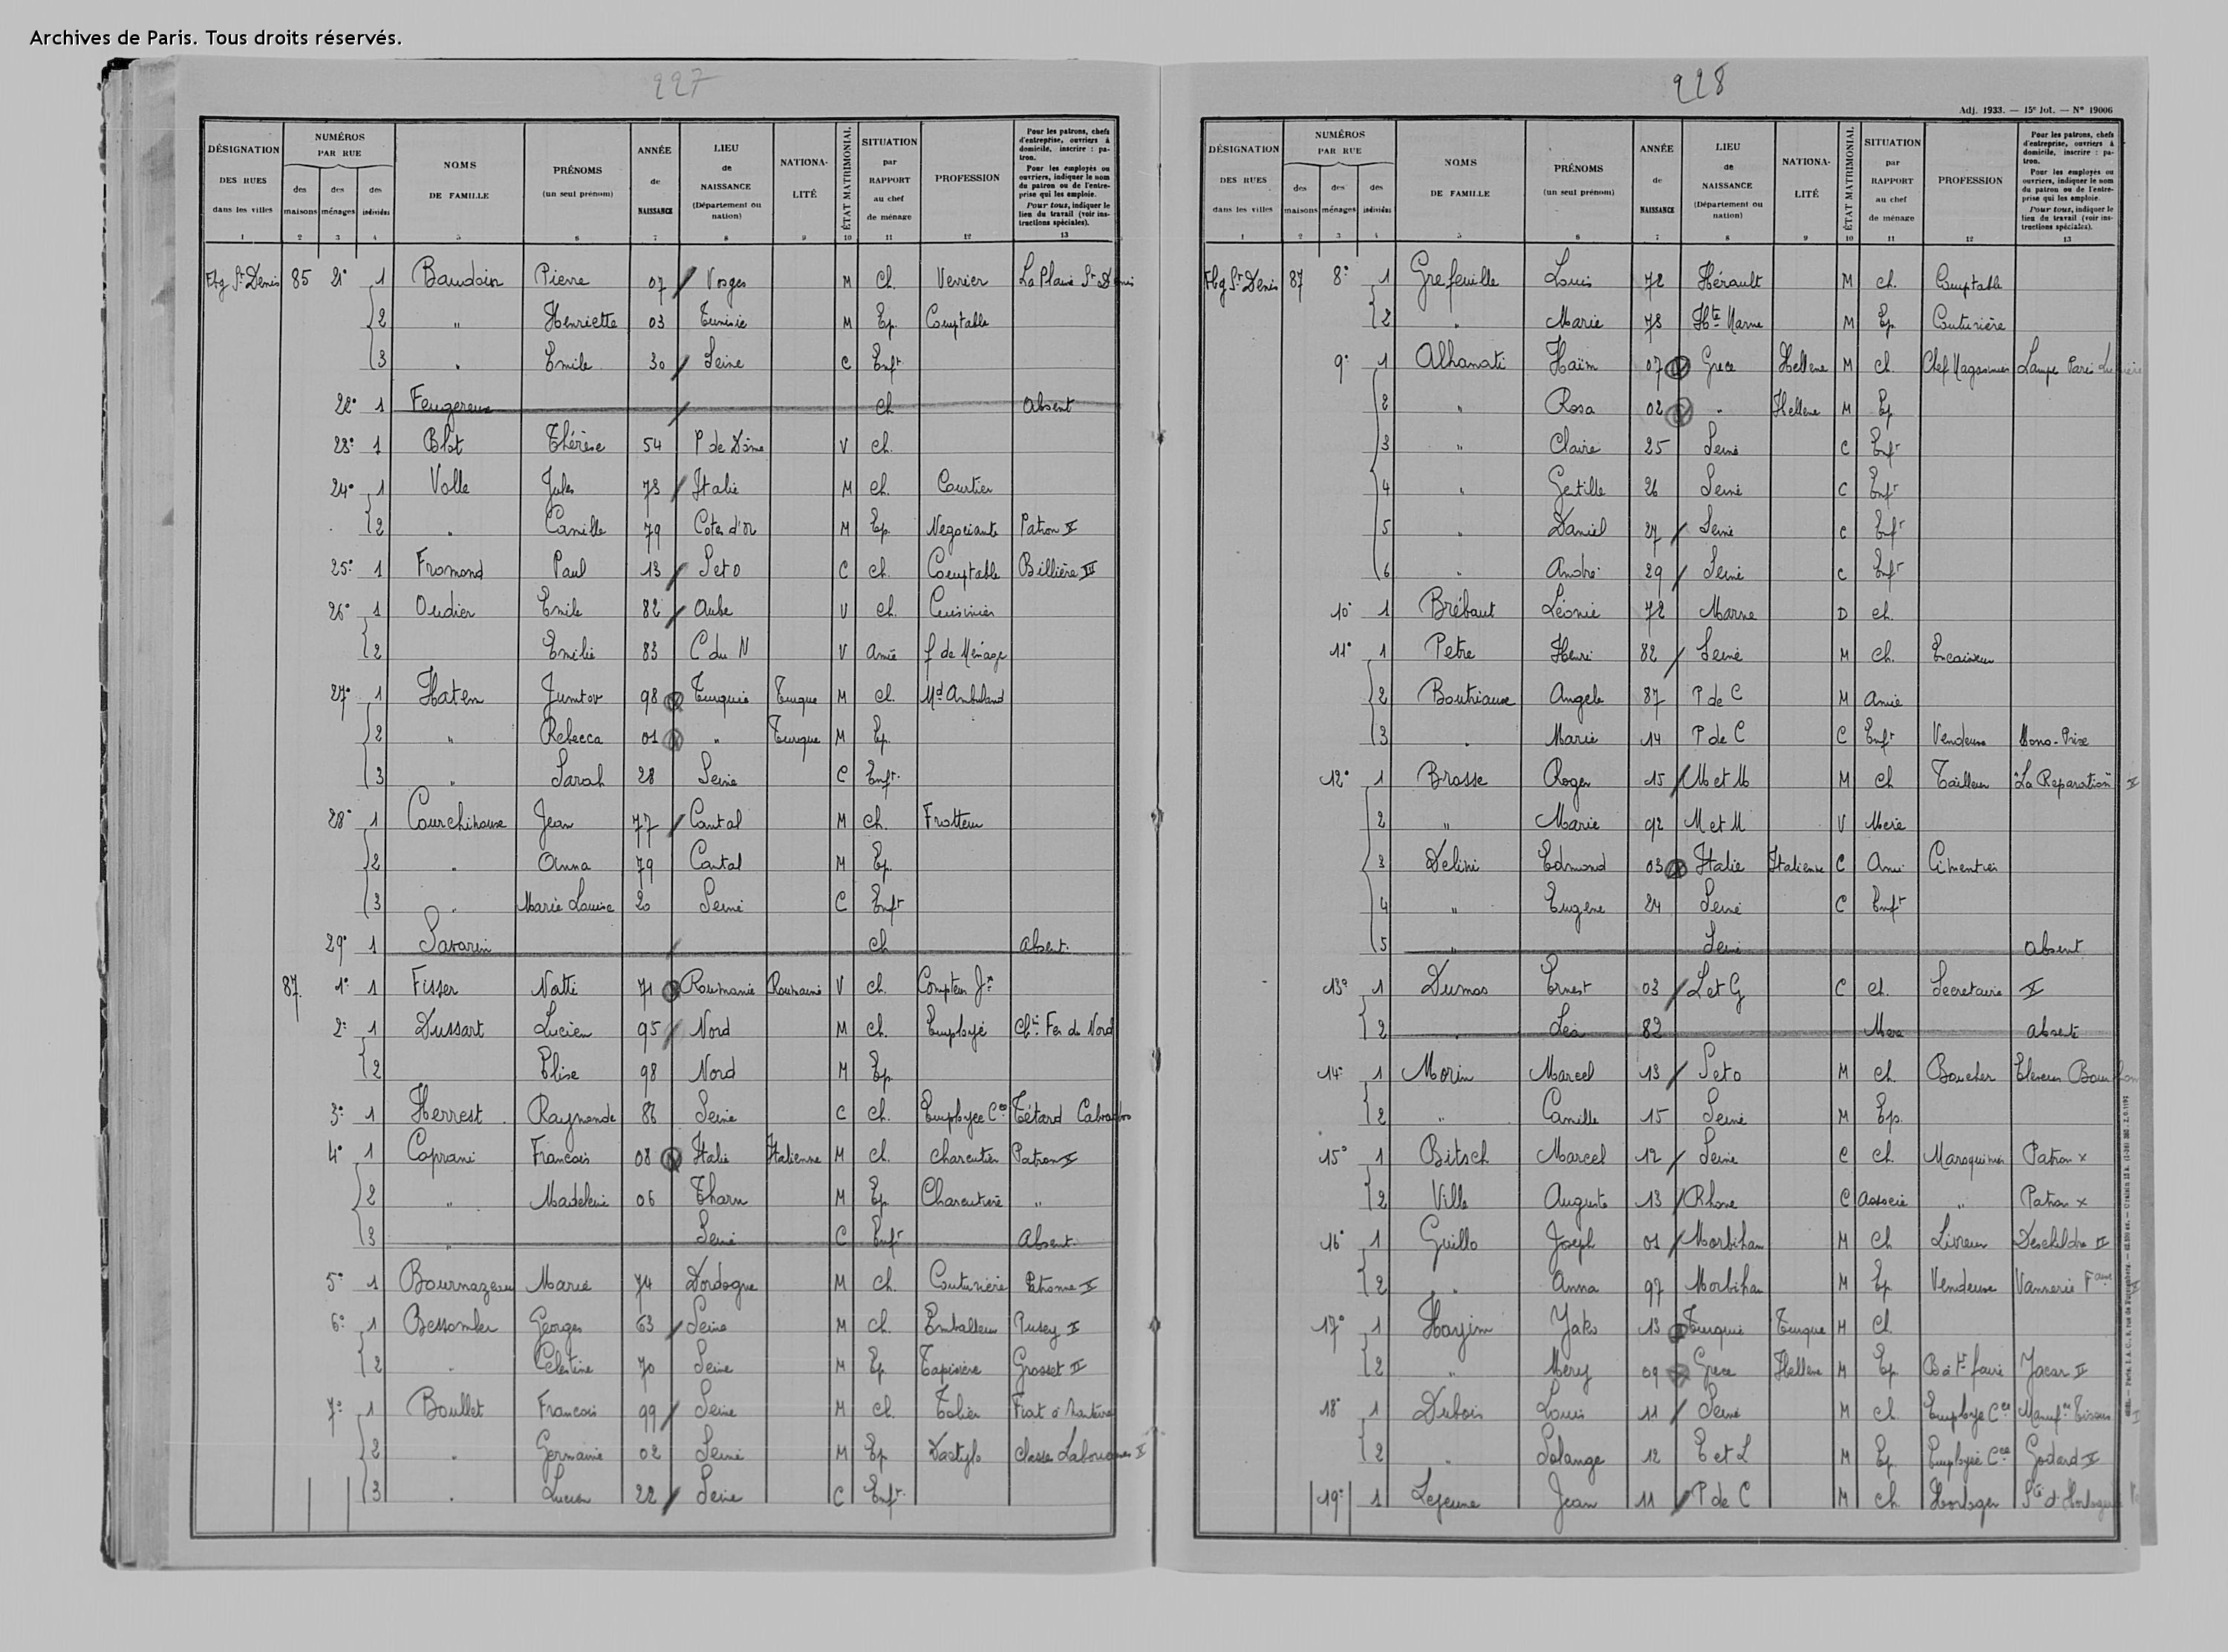 Archives de Paris. Tous droits réservés.
227
DÉSIGNATION DES RUES dans les villes 1
NUMÉROS PAR RUE
des maisons 2
des ménages 3
des individus 4
NOMS DE FAMILLE 5
PRÉNOMS (un seul prénom) 6
ANNÉE de NAISSANCE 7
LIEU de NAISSANCE (Département ou nation) 8
NATIONALITÉ 9
ÉTAT MATRIMONIAL 10
SITUATION par RAPPORT au chef de ménage 11
PROFESSION 12
Pour les patrons, chefs d'entreprise, ouvriers à domicile, inscrire : patron.
Pour les employés ou ouvriers, indiquer le nom du patron ou de l'entreprise qui les emploie.
Pour tous, indiquer le lieu du travail (voir instructions spéciales). 13
Fbg St Denis 85 21° 1 Baudoin Pierre 07 Vosges M Ch. Verrier La Plaine St Denis
2 " Henriette 03 Tunisie M Ep. Comptable
3 " Emile 30 Seine C Enft
22° 1 Feugereux Ch Absent
23° 1 Blot Thérèse 54 P de Dôme V Ch.
24° 1 Volle Jules 73 Italie M Ch. Courtier
2 " Camille 79 Cotes d'Or M Ep. Negociante Patron X
25° 1 Fromond Paul 13 SetO C Ch. Comptable Billière III
26° 1 Oudier Emile 82 Aube V Ch. Cuisinier
2 Emilie 83 C du N V Amie f de Ménage
27° 1 Hatem Jumtov 98 Turquie Turque M Ch. Md Ambulant
2 " Rebecca 01 " Turque M Ep.
3 " Sarah 28 Seine C Enft.
28° 1 Courchinoux Jean 77 Cantal M Ch. Frotteur
2 " Anna 79 Cantal M Ep.
3 " Marie Louise 20 Seine C Enft
29° 1 Savarin Ch Absent.
87. 1° 1 Fisser Natti 71 Roumanie Roumaine V Ch.
2° 1 Dussart Lucien 95 Nord M Ch. Employé Ch. Fer du Nord
2 Elise 98 Nord M Ep.
3° 1 Herrest Raymonde 86 Seine C Ch. Employée Ce Tétard
4° 1 Caprani Francois 08 Italie Italienne M Ch. Charcutier Patron X
2 " Madeleine 06 Tharn M Ep. Charcutière "
3 " Seine C Enft Absent.
5° 1 Bournazeau Marie 74 Dordogne M Ch. Couturière Patronne X
6° 1 Bessombes Georges 63 Seine M Ch. Emballeur Pusey X
2 " Celestine 70 Seine M Ep. Tapissière Grosset II
7° 1 Boullet Francois 99 Seine M Ch. Tolier Fiat à Nanterre
2 " Germaine 02 Seine M Ep. Dactylo
3 " Lucien 22 Seine C Enft
228
Adj. 1933. — 15e lot. — N° 19006
DÉSIGNATION DES RUES dans les villes 1
NUMÉROS PAR RUE
des maisons 2
des ménages 3
des individus 4
NOMS DE FAMILLE 5
PRÉNOMS (un seul prénom) 6
ANNÉE de NAISSANCE 7
LIEU de NAISSANCE (Département ou nation) 8
NATIONALITÉ 9
ÉTAT MATRIMONIAL 10
SITUATION par RAPPORT au chef de ménage 11
PROFESSION 12
Pour les patrons, chefs d'entreprise, ouvriers à domicile, inscrire : patron.
Pour les employés ou ouvriers, indiquer le nom du patron ou de l'entreprise qui les emploie.
Pour tous, indiquer le lieu du travail (voir instructions spéciales). 13
Fbg St Denis 87 8° 1 Grefeuille Louis 72 Hérault M Ch. Comptable
2 " Marie 73 Hte Marne M Ep. Couturière
9° 1 Alhanati Haïm 07 Grece Hellene M Ch. Chef Magasinier Lampe Paris
2 " Rosa 02 " Hellene M Ep
3 " Claire 25 Seine C Enft
4 " Gentille 26 Seine C Enft
5 " Daniel 27 Seine C Enft
6 " André 29 Seine C Enft
10° 1 Brébaut Léonie 72 Marne D Ch.
11° 1 Petre Henri 82 Seine M Ch. Encaisseur
2 Bouthiaux Angele 87 P de C M Amie
3 " Marie 14 P de C C Enft Vendeuse Mono-Prix
12° 1 Brasse Roger 15 M et M M Ch Tailleur "La Reparation" X
2 " Marie 92 M et M V Mere
3 Delini Edmond 03 Italie Italienne C Ami Cimentier
4 " Eugene 24 Seine C Enft
5 " Seine Absent
13° 1 Dumas Ernest 03 L et G C Ch. Secretaire X
2 " Léa 82 Mere Absente
14° 1 Morin Marcel 13 SetO M Ch. Boucher
2 " Camille 15 Seine M Ep.
15° 1 Bitsch Marcel 12 Seine C Ch. Maroquinier Patron x
2 Ville Auguste 13 Rhone C Associé " Patron x
16° 1 Guillo Joseph 01 Morbihan M Ch Livreur
2 " Anna 97 Morbihan M Ep Vendeuse Vannerie
17° 1 Hayim Yako 13 Turquie Turque M Ch.
2 " Mery 09 Grece Hellene M Ep Jacar II
18° 1 Dubois Louis 11 Seine M Ch. Employé Cce
2 " Solange 12 E et L M Ep. Employée Cce Godard X
19° 1 Lejeune Jean 11 P de C M Ch Horloger